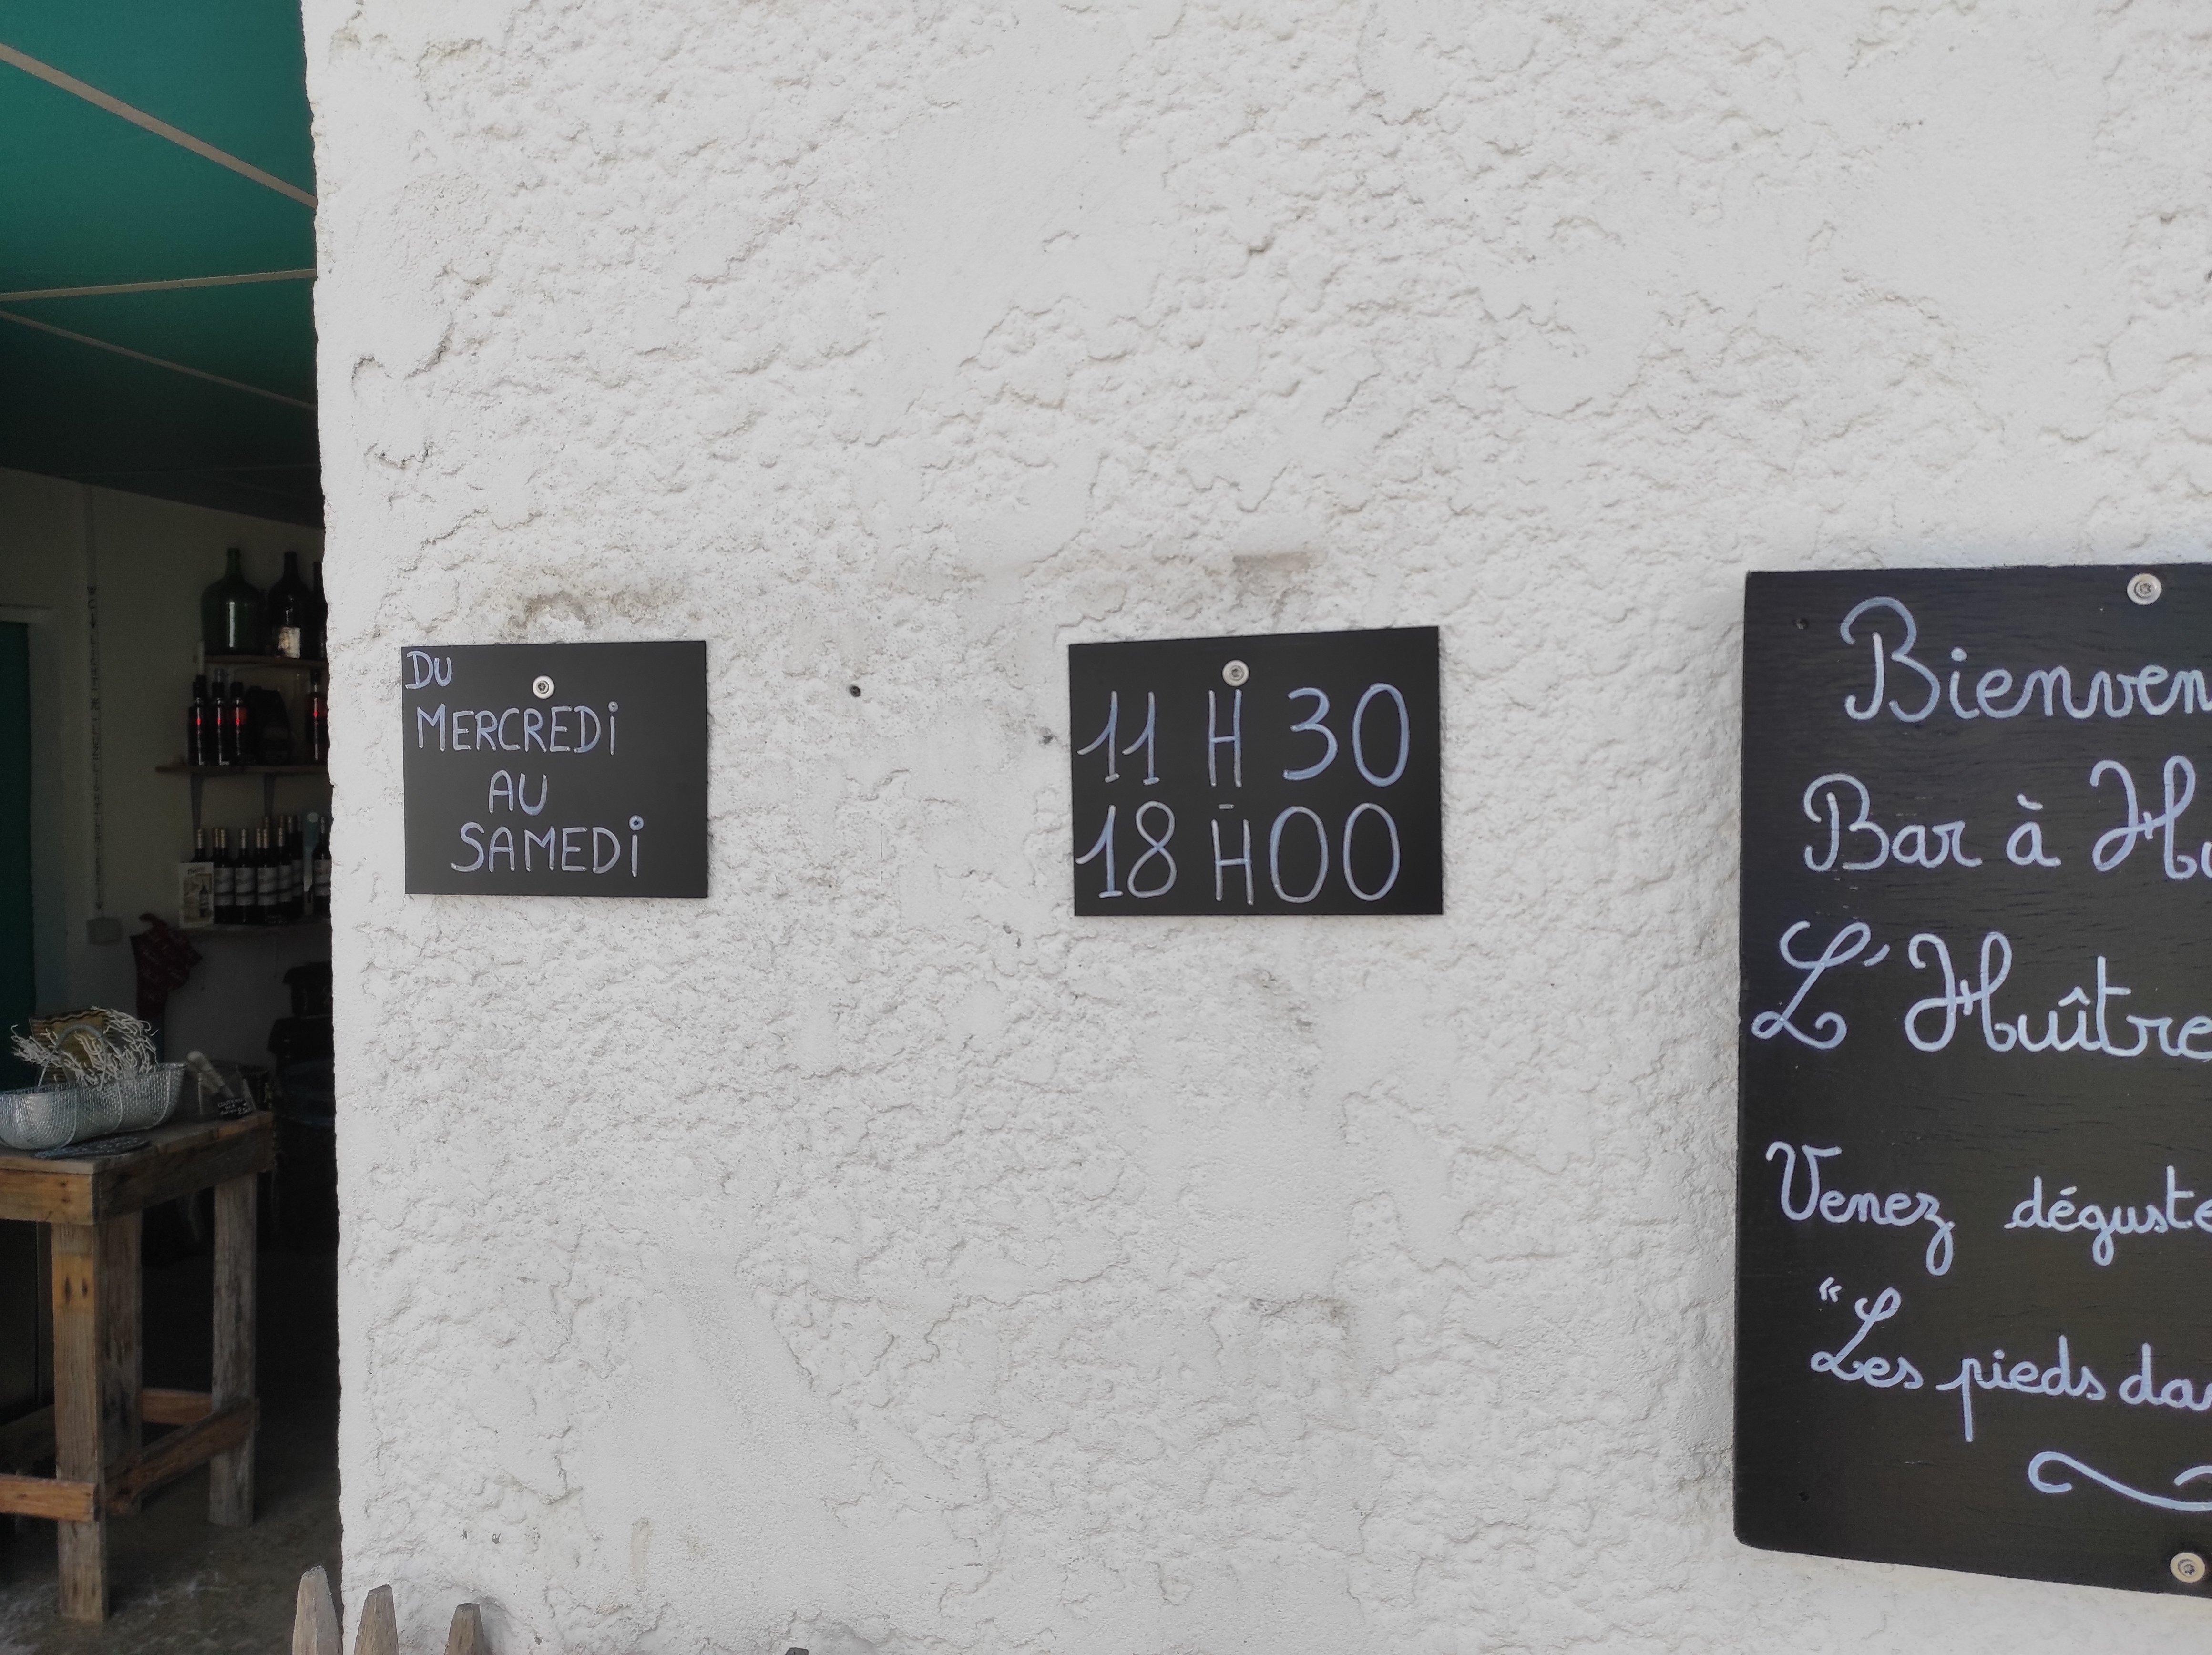 DU
MERCREDi
AU
SAMEDi
11 H 30
-
18 H 00
Bienven
Bar à Hu
L'Huître
Venez déguste
"Les pieds dan